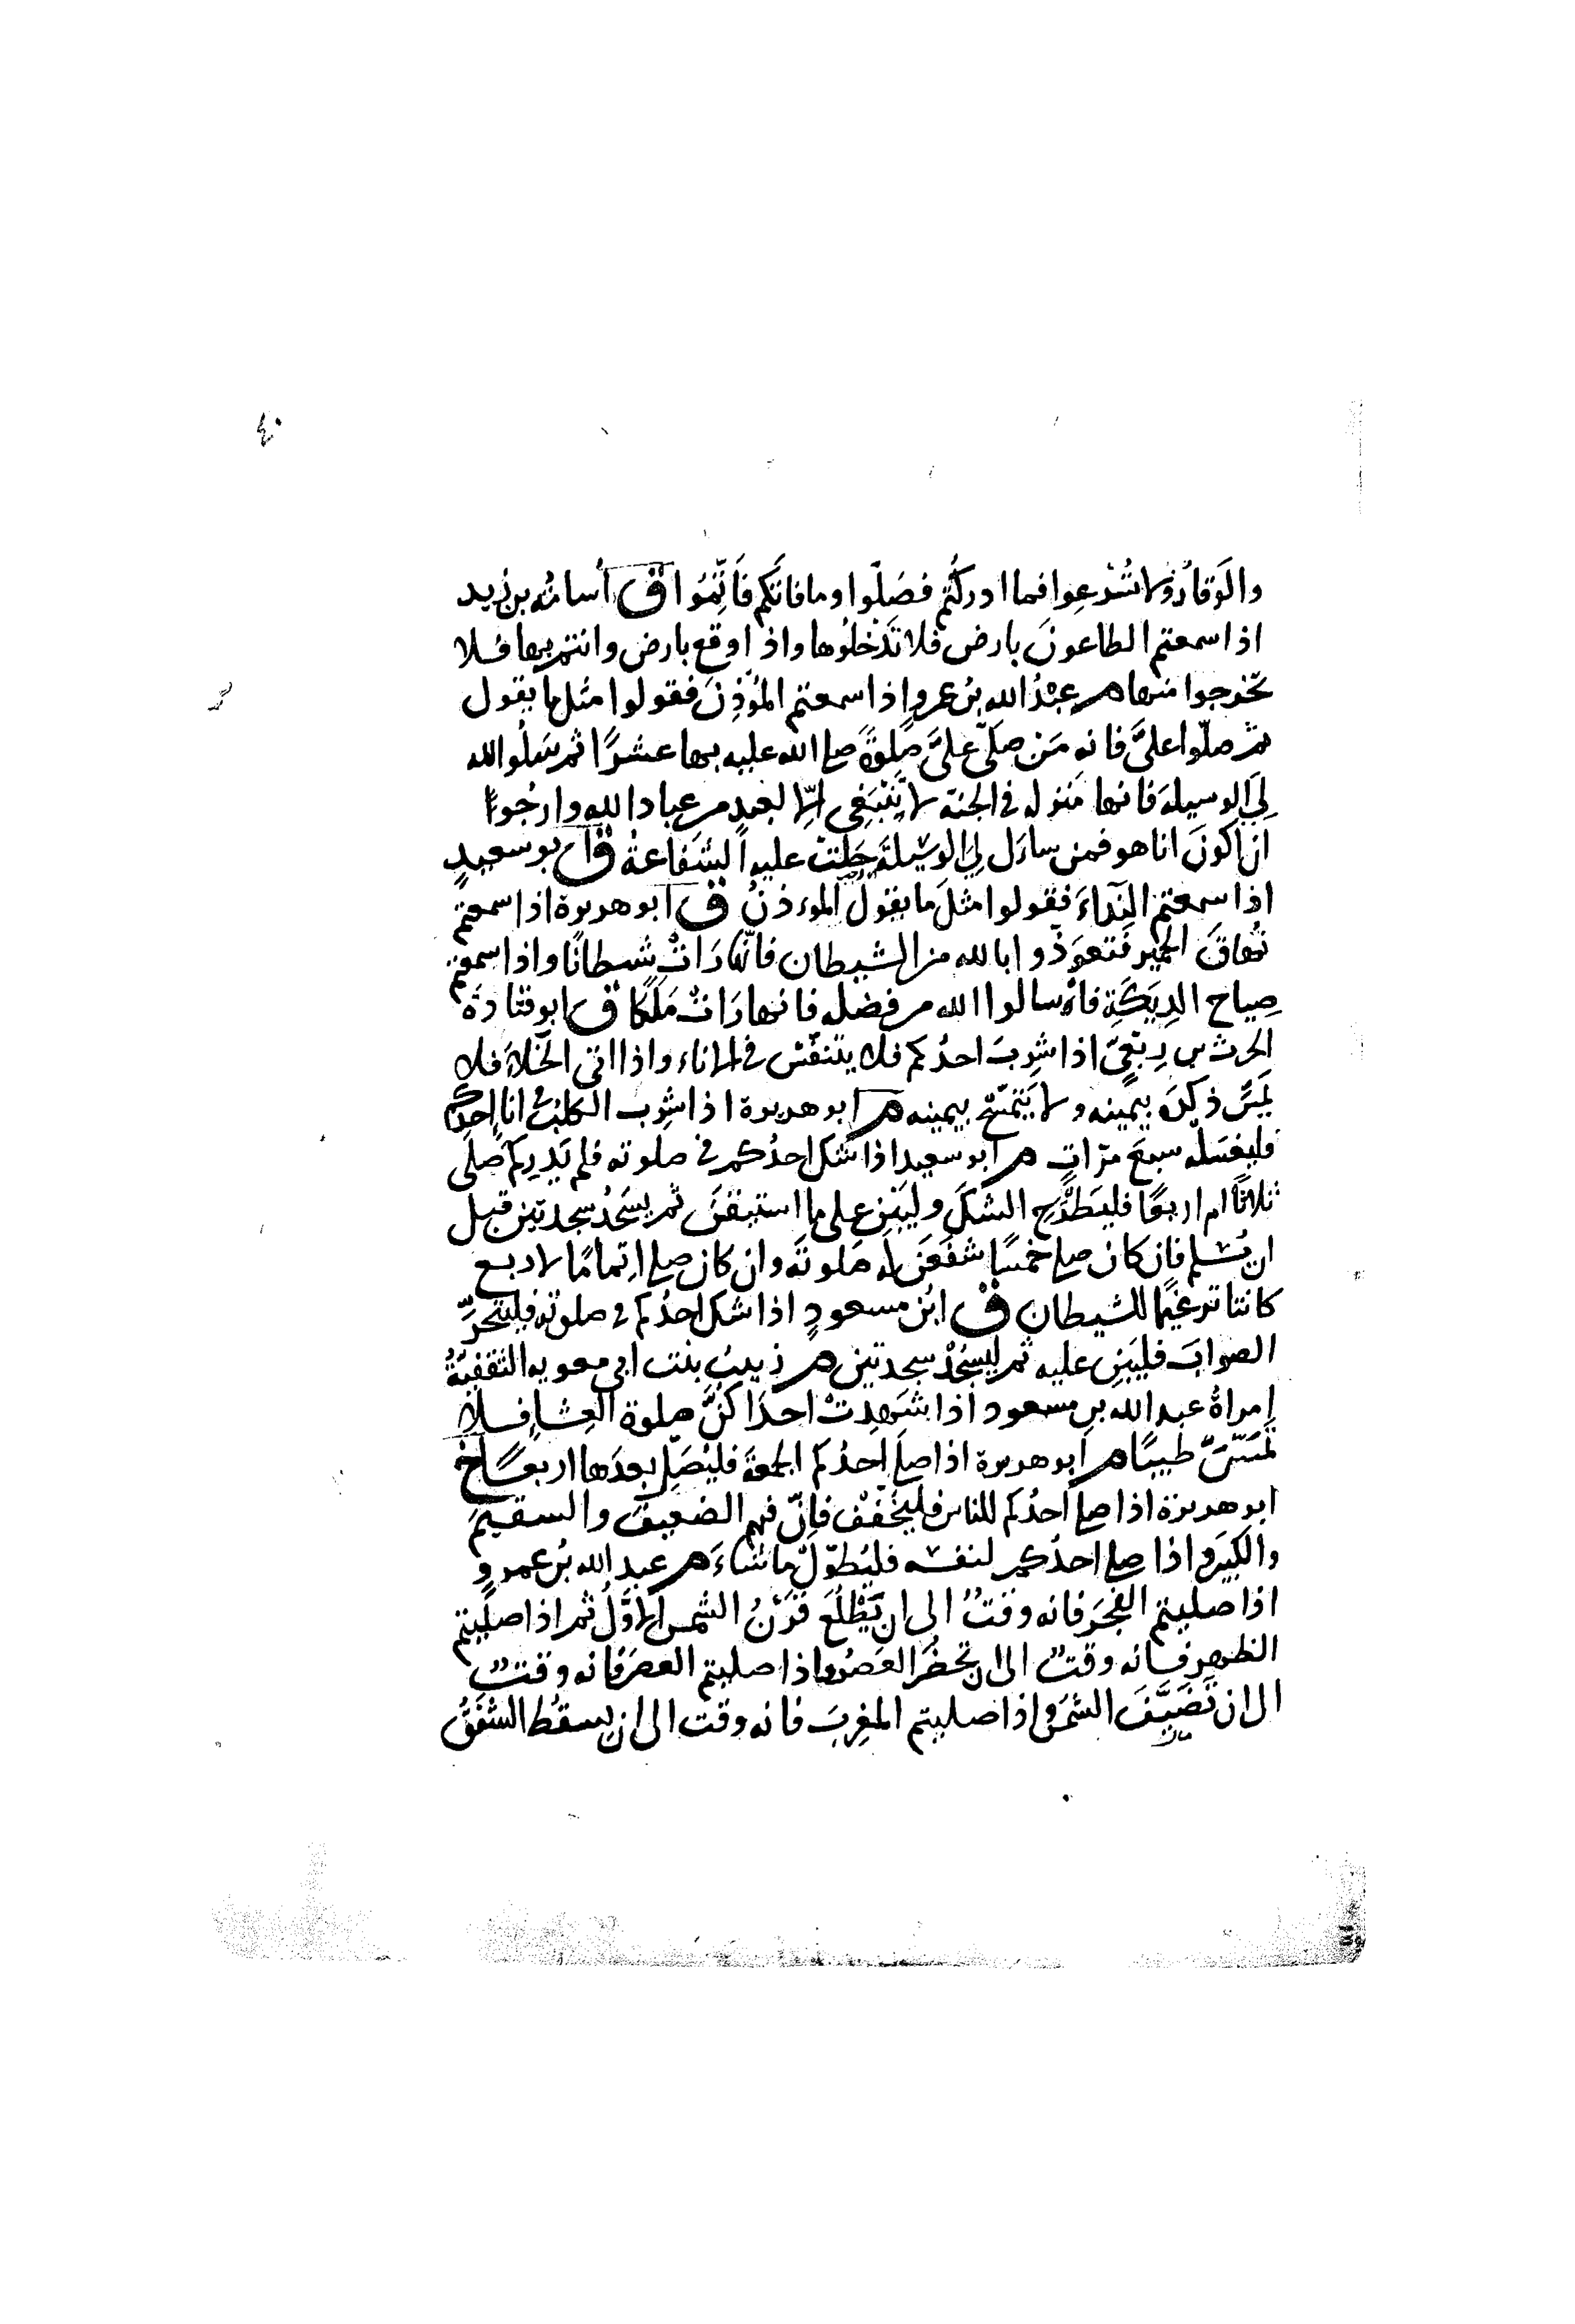 ٤٠
والوَقارُ ولا تُسْرِعوا فما ادركتُم فصَلّوا وما فاتَكم فاَتِّمُوا ق اُسامُة بن زيد
اذا سمعتم الطاعونَ بارض فلا تَدْخلُوها واذا وقع بارض وانتم بها فلا
تخرجوا منها م عبْدُ الله بنُ عمروٍ اذا سمعتم المُؤَذِنَ فقولوا مثل ما يقول
ثم صلّوا عليَّ فانه مَن صلّى عليَّ صلوةً صلى الله عليه بها عشرًا ثم سَلُوا الله
لِيَ الوسيلةَ فانها منزله في الجنة لا تَنْبَغِى اِلّا لعبدٍ من عباد الله وارجُوا
ان اكونَ انا هو فمن سأَل لِيَ الوسيلةَ حَلتْ عليه الشفاعةُ ق ابو سعيدٍ
اذا سمعتم النّداءَ فقولوا مثلَ ما يقول الموءذنُ ق ابو هريرة اذا سمعتم
نُهاقَ الحمير فتعوَّذوا بالله من الشيطان فانّها رَاتْ شيطانًا واذا سمعتم
صِياح الدِيَكَةِ فاسالوا الله من فضله فانها رَاتْ مَلَكًا ق ابو قتادةَ
الحرث بن رِبْعيٍّ اذا شرِبَ احدُكم فلا يتنفّسْ في الاناء واذا اتى الخلاَءَ فلا
يَمَسَّ ذكَرَه بيمينه ولا يَتَمَسّحْ بيمينه م ابو هريرة اذا شرِب الكلبُ في اناءِ احدِكم
فليغسلْه سبعَ مرّاتٍ م ابو سعيد اذا شكّ احدُكم في صلوته فلم يَدرِ كم صلّى
ثلاثًا ام اربعًا فليَطْرَحِ الشكَّ وليَبْنِ على ما استيقنَ ثم يسجُدُ سجدتين قبل
ان يُسلم فان كان صلى خمسًا شفَعْنَ له صلوتَه وان كان صلى اِتمامًا لاربع
كانتا ترغيمًا للشيطان ق ابْن مسعودٍ اذا شك احدُكم في صلوته فليتحرِّ
الصوابَ فليَبْنِ عليه ثم ليسجُدْ سجدتين م زينبُ بنت ابي معويه الثقفيةُ
اِمراةُ عبد الله بن مسعود اذا شَهِدتْ احدَاكنَّ صلوة العِشاءِ فلا
تمَسّنَّ طيبًا م ابو هريرة اذا صلى احدُكم الجمعةَ فليُصَلِّ بعدَها اربعًا خ
ابو هريرة اذا صلى احدُكم للناس فليُخَفّفْ فاِنّ فيهم الضعيفَ والسقيمَ
والكبيَر واذا صلى احدُكم لنفسه فليُطوّلْ ما شاءَ م عبد الله بنُ عمروٍ
اذا صليتم الفجرَ فانه وقتٌ الى ان يَطْلُعَ قَرْنُ الشمس الاوّلُ ثم اذا صليتم
الظهر فانه وقتٌ الى ان تحضُرَ العصرُ واذا صليتم العصرَ فانه وقتٌ
الى ان تَضَيَّفَ الشمسُ واذا صليتم المغرِبَ فانه وقت الى ان يسقُط الشفَقُ